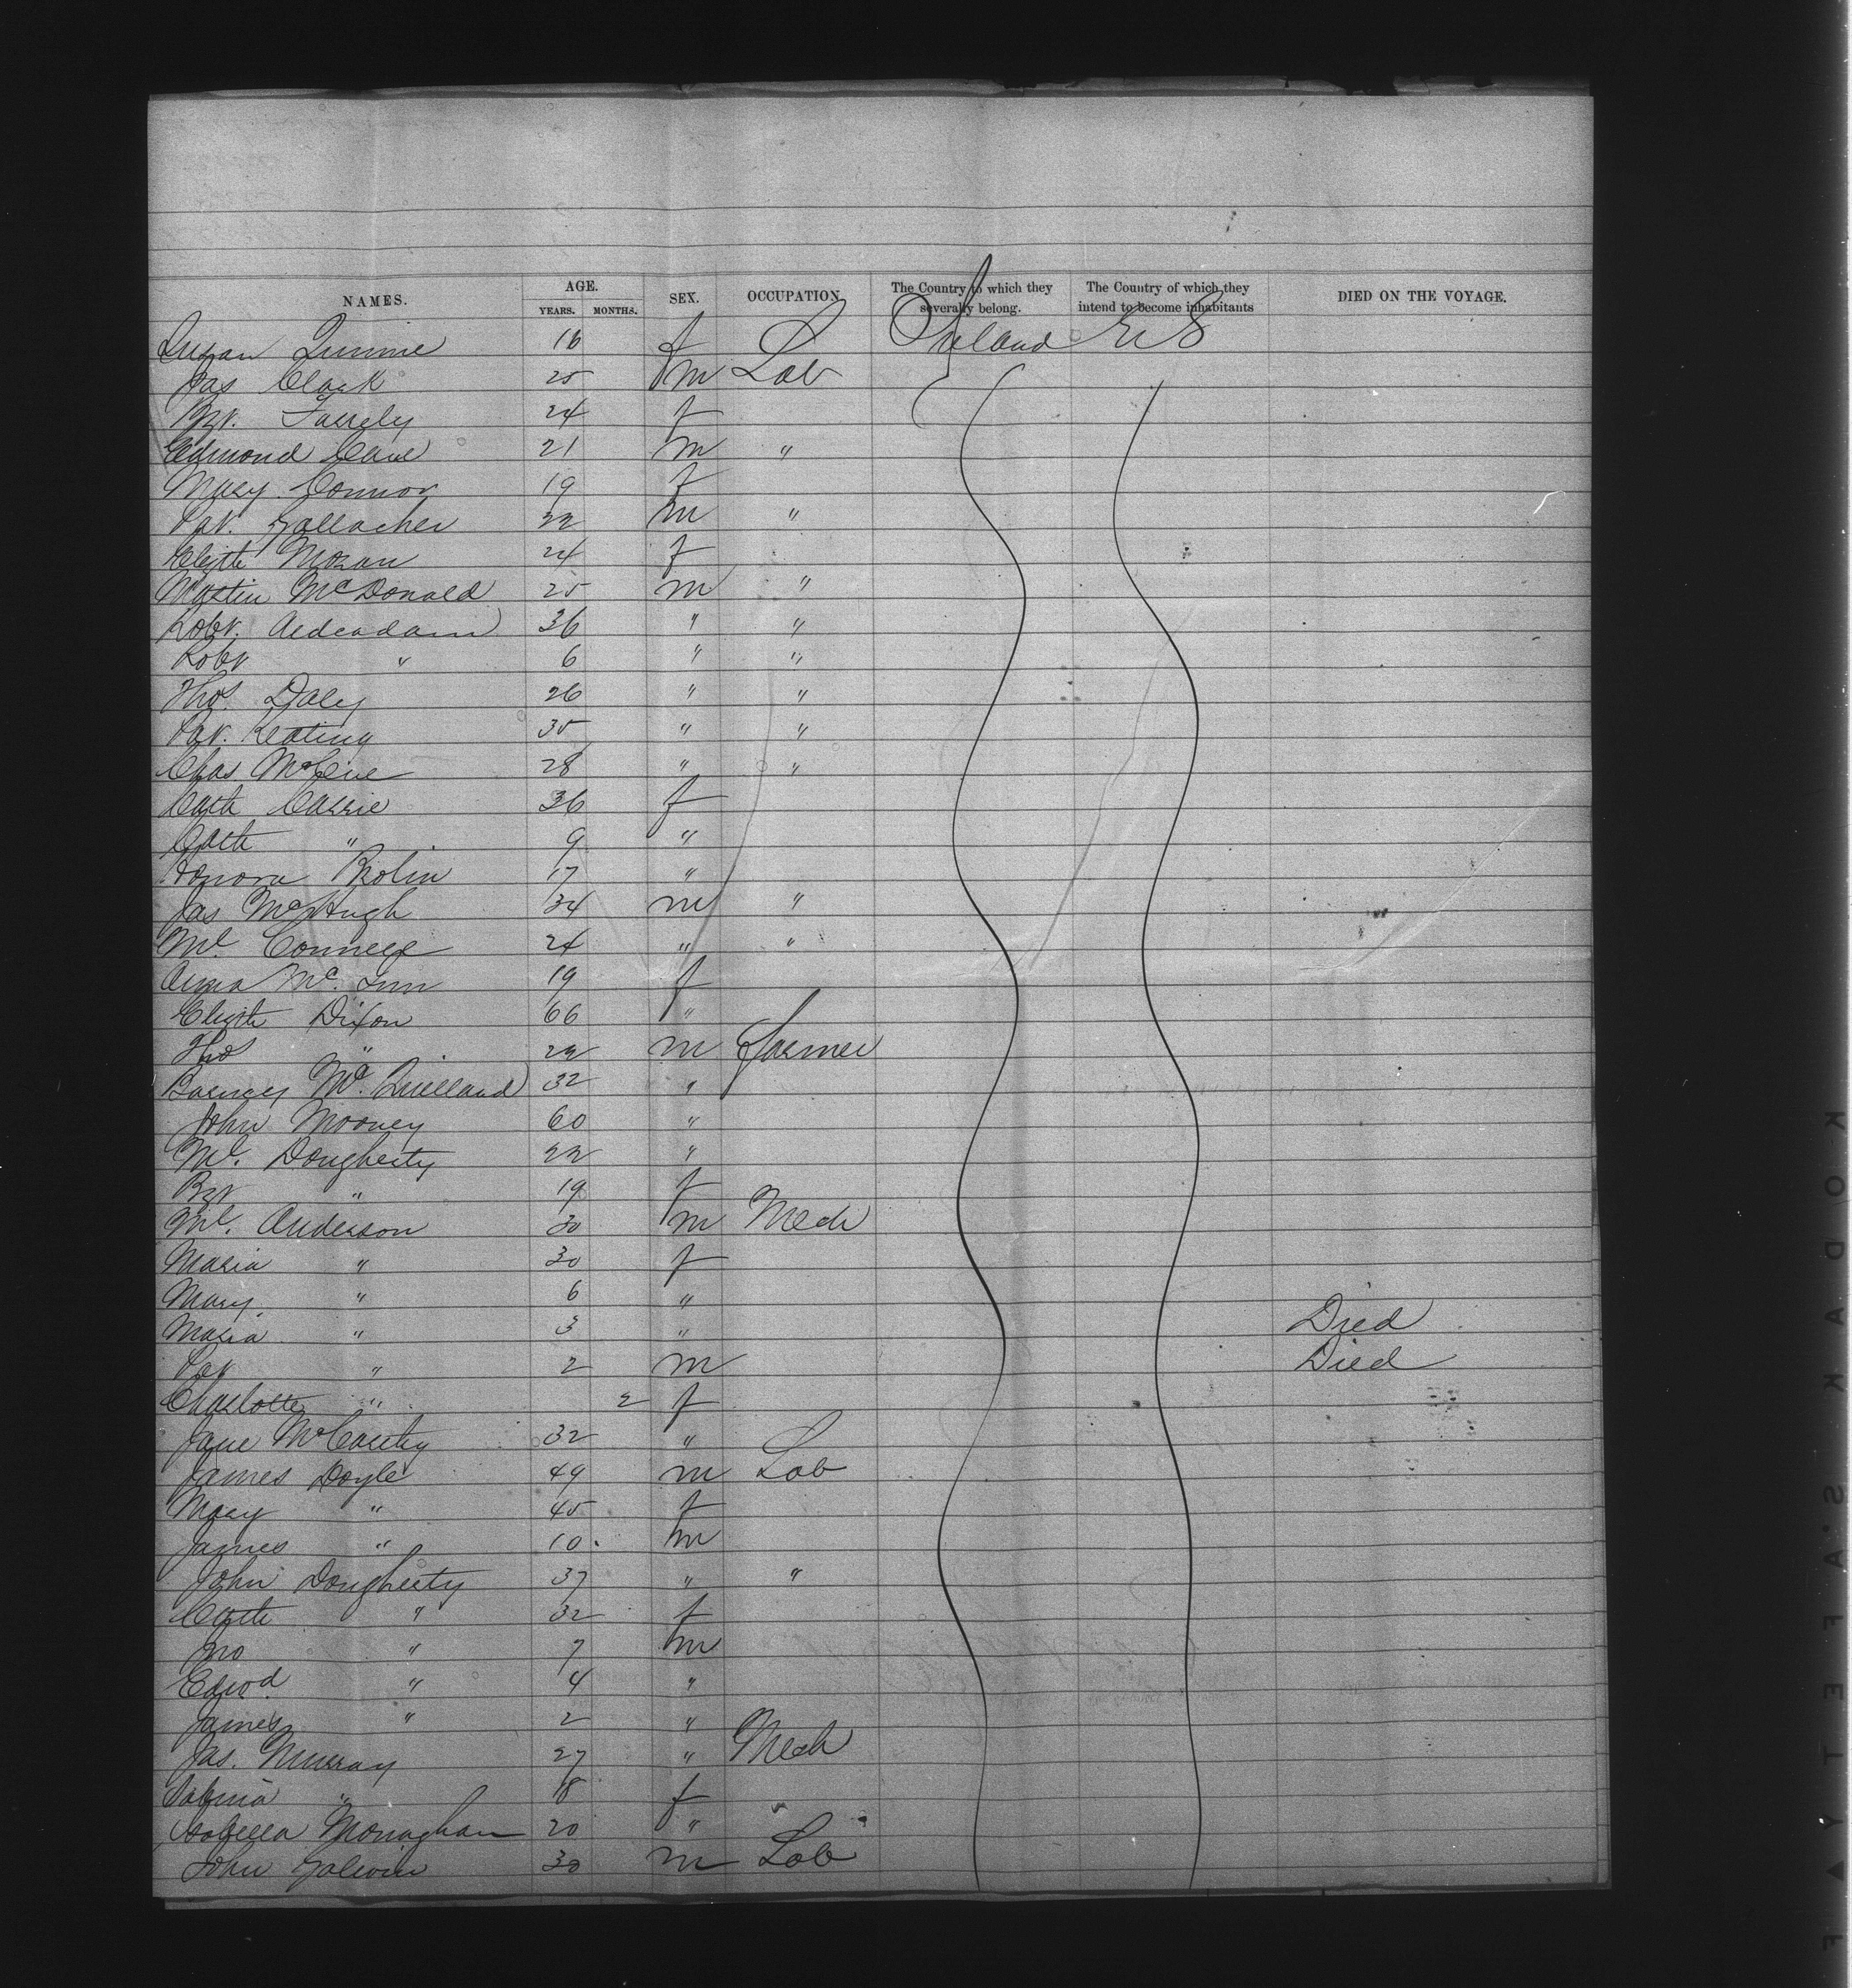 NAMES. AGE. YEARS. MONTHS. SEX. OCCUPATION. The Country to which they severally belong. The Country of which they intend to become inhabitants DIED ON THE VOYAGE.
Susan 16 f Ireland U S
Jas Clark 25 m Lab
24 f
Edmond 21 m "
Mary Connor 19 f
Pat. Gallacher 22 m "
Elizth Moran 24 f
Martin McDonald 25 m "
Robt. 36 " "
Robt " 6 " "
Thos. Daly 26 " "
Pat. Keating 35 " "
Chas 28 " "
Cath Carrie 36 f
Cath " 9 "
Honora 17 "
Jas McHugh 34 m "
Ml. Connell 24 " "
Mc. 19 f
Elizth Dixon 66 "
Thos " 22 m Farmer
Barney Mc. 32 "
John Mooney 60 "
Ml. Dougherty 22 "
" 19 f
Ml. Anderson 30 m Mech
Maria " 30 f
Mary " 6 "
Maria " 3 " Died
Pat " 2 m Died
Charlotte " 2 f
Jane McCarthy 32 "
James Doyle 49 m Lab
Mary " 45 f
James " 10. m
John Dougherty 37 " "
Cath " 32 f
Jno " 7 m
Edwd. " 4 "
James " 2 "
Jas. Murray 27 " Mech
Sabina " 18 f
Isabella Monaghan 20 "
John Galvin 30 m Lab
KODAK S.AFETY F